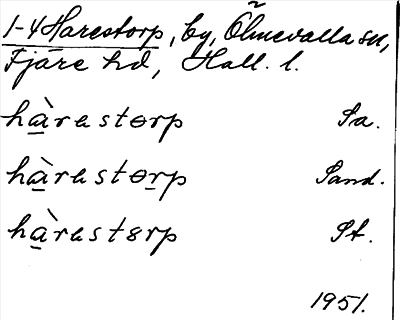 1-4 Harestorp, by, Ölmevalla sn,
Fjäre hd, Hall. l.
hà̱rastɵrp Sa.
hà̱rastɵ̱rp Sand.
hà̱rastɵrp St.
1951.